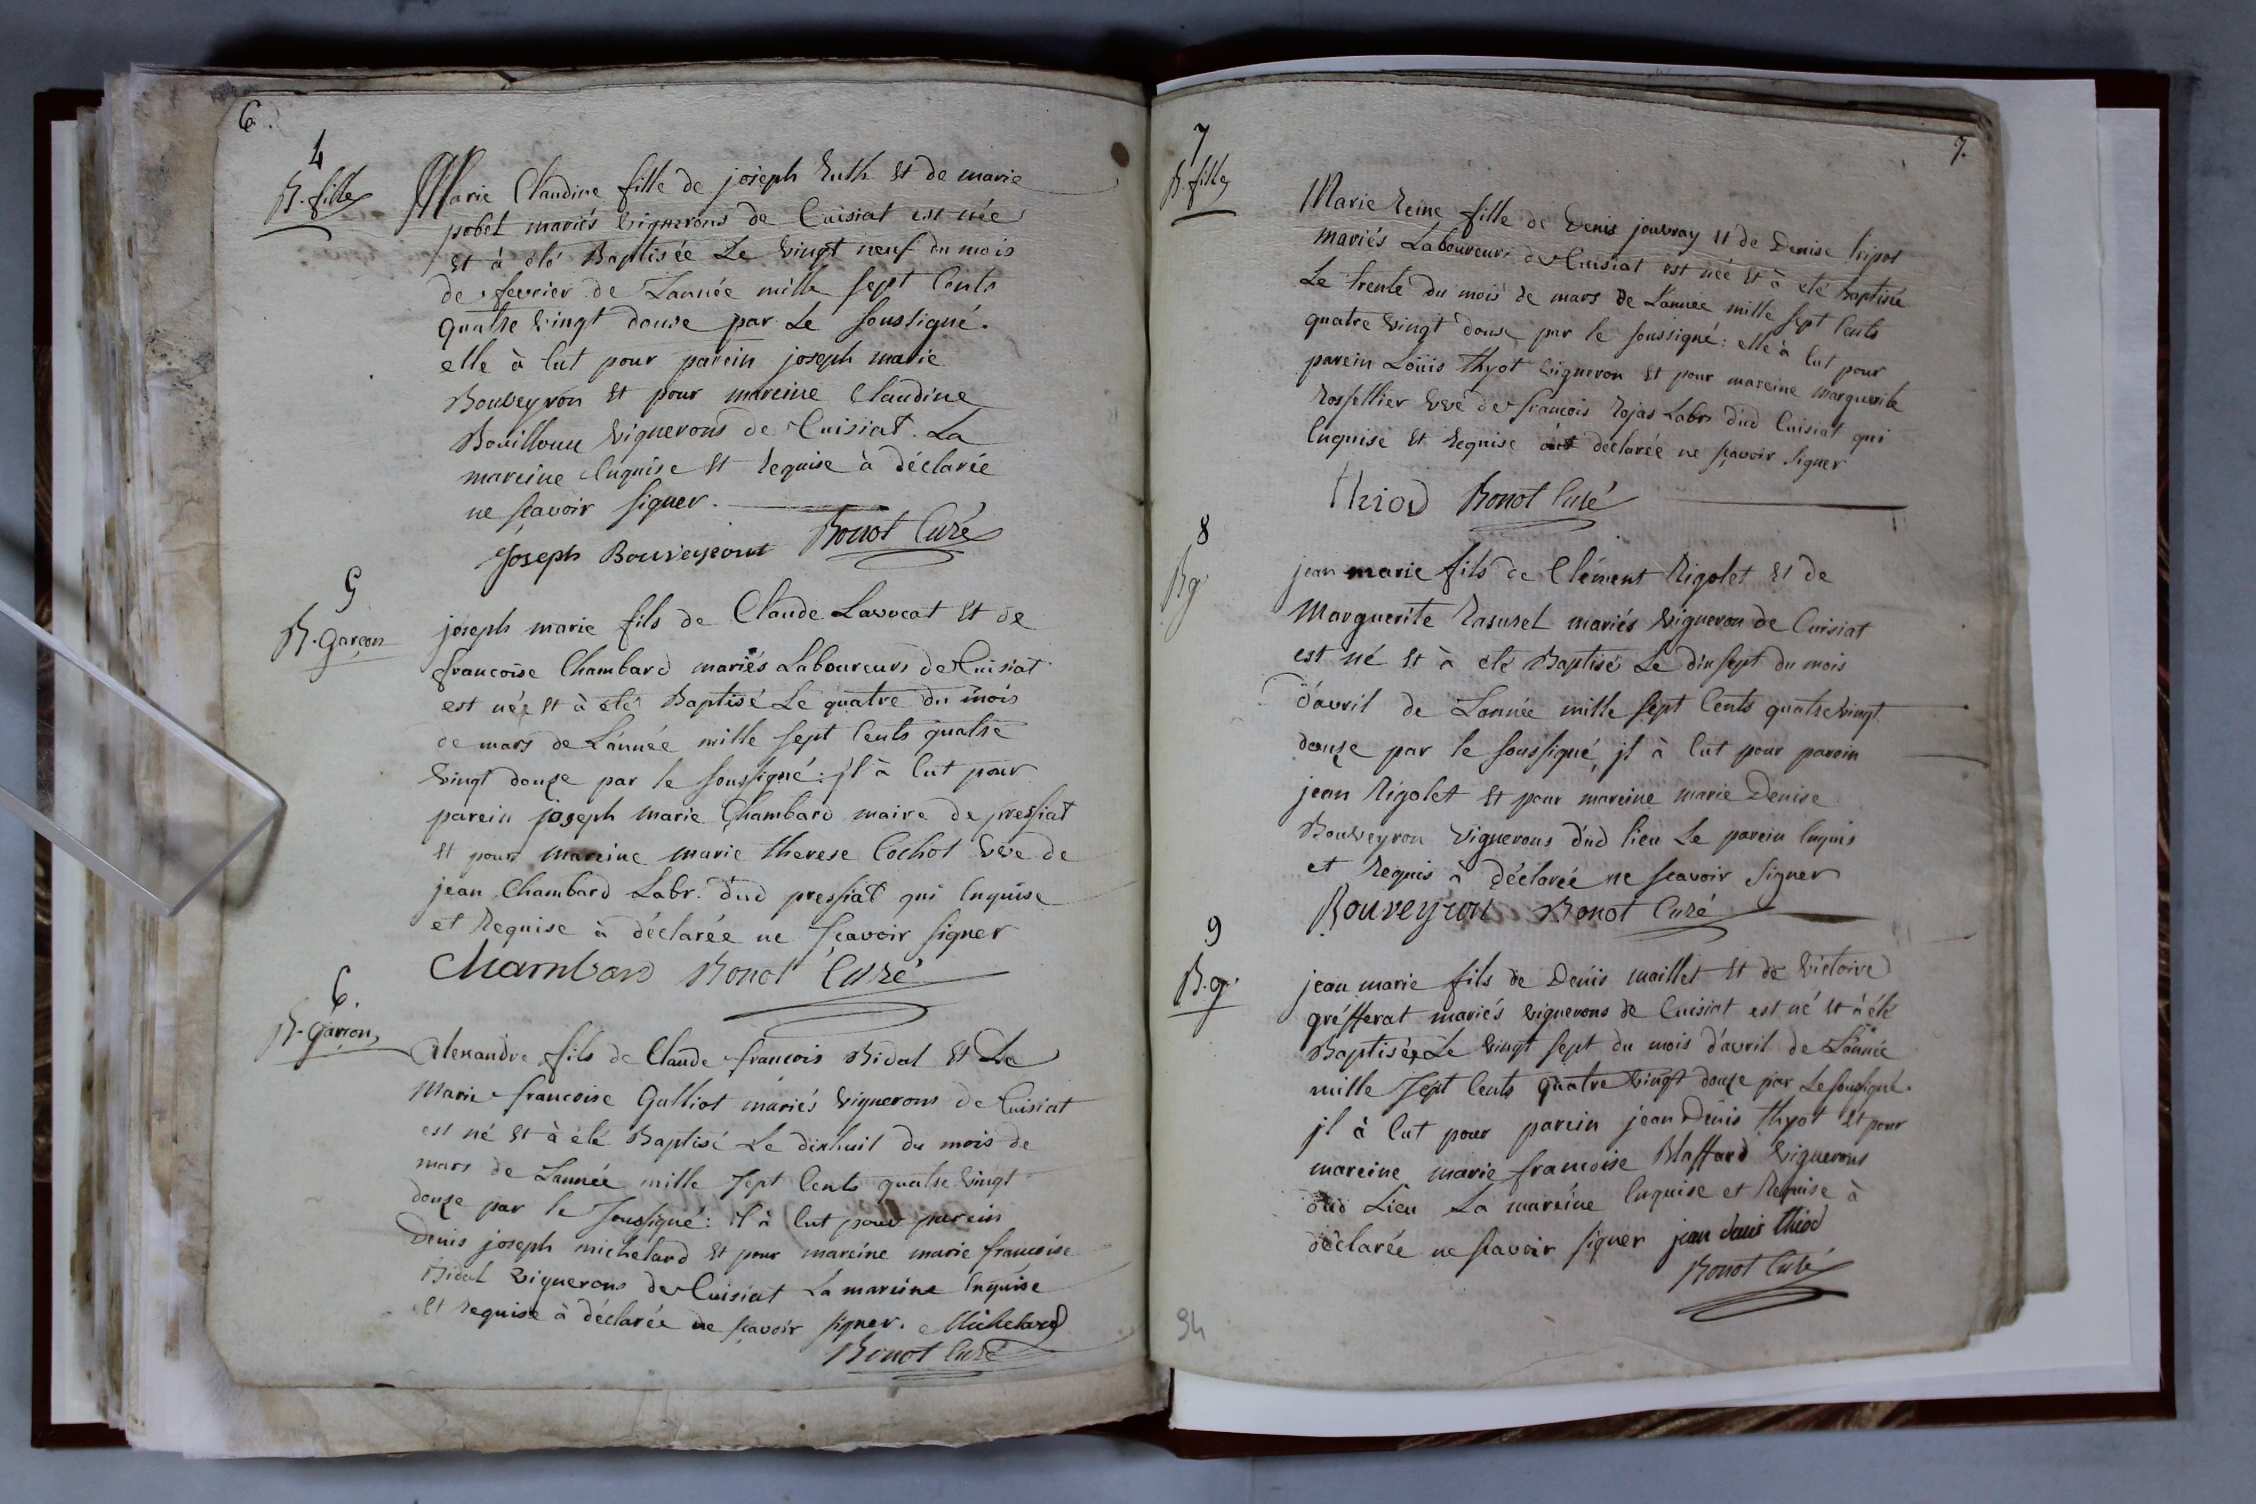 6.
4
B. fille
Marie Claudine fille de joseph Ruth et de marie
pobel mariés vignerons de Cuisiat est née
et à été Baptisée Le vingt neuf du mois
de fevrier de Lannée mille sept Cents
quatre vingt douse par Le soussigné.
elle à Eut pour parein joseph marie
Bouveyron et pour mareine Claudine
Bouilloux vignerons de Cuisiat. La
mareine Enquise et Requise à déclarée
ne sçavoir signer.
Joseph Bouveyront Bonot Curé
5
B. garçon
joseph marie fils de Claude Lavocat et de
francoise Chambard mariés Laboureurs de Cuisiat
est née et à eté Baptisé Le quatre du mois
de mars de Lánnée mille sept Cents quatre
vingt douze par le soussigné: jl à Eut pour
parein joseph marie Chambard maire de pressiat
et pour mareine marie therese Cochot vve de
jean Chambard Labr. dud pressiat qui Enquise
et Requise à déclarée ne sçavoir signer
Chambard Bonot Curé
6.
B. garçon
Alexandre fils de Claude francois Bidal et De
Marie francoise Galliot mariés vignerons de Cuisiat
est né et à été Baptisé Le dixhuit du mois de
mars de Lannée mille sept Cents quatre vingt
douze par le soussigné: il à Eut pour parein
Denis joseph michelard et pour mareine marie francoise
Bidal vignerons de Cuisiat La mareine Enquise
et requise à déclarée ne sçavoir signer. Michelard
Bonot Curé
7.
7
B. fille
Marie Reine fille de Denis jouvray et de Denise Tripot
mariés Laboureurs de Cuisiat est née et à eté Baptisée
Le trente du mois de mars de Lannée mille sept Cents
quatre vingt douse par le soussigné: elle à Eut pour
parein Loüis thyot vigneron et pour mareine marguerite
Rossellier vve de francois Rojas Labr dud Cuisiat qui
Enquise et Requise déclarée ne sçavoir signer
thiod Bonot Curé
8
B g.
jean marie fils de Clément Rigolet et de
Marguerite Rasurel mariés vigneron de Cuisiat
est né et à été Baptisé Le dix sept du mois
d'avril de Lannée mille sept Cents quatre vingt
douze par le soussigné, jl à Eut pour parein
jean Rigolet et pour mareine marie Denise
Bouveyron vignerons dud lieu Le parein Enquis
et Requis à déclarée ne scavoir signer
Bouveyron Bonot Curé
9
B. g.
jean marie fils de Denis maillet et de victoire
grésserat mariés vignerons de Cuisiat est né et à été
Baptisée Le vingt sept du mois d'avril de Lánnée
mille sept Cents quatre vingt douze par Le soussigné.
jl à Eut pour parein jean Denis thyot et pour
mareine marie francoise Blaffard vignerons
dud Lieu La mareine Enquise et Requise à
déclarée ne sçavoir signer jean denis thiod
Bonot Curé
94